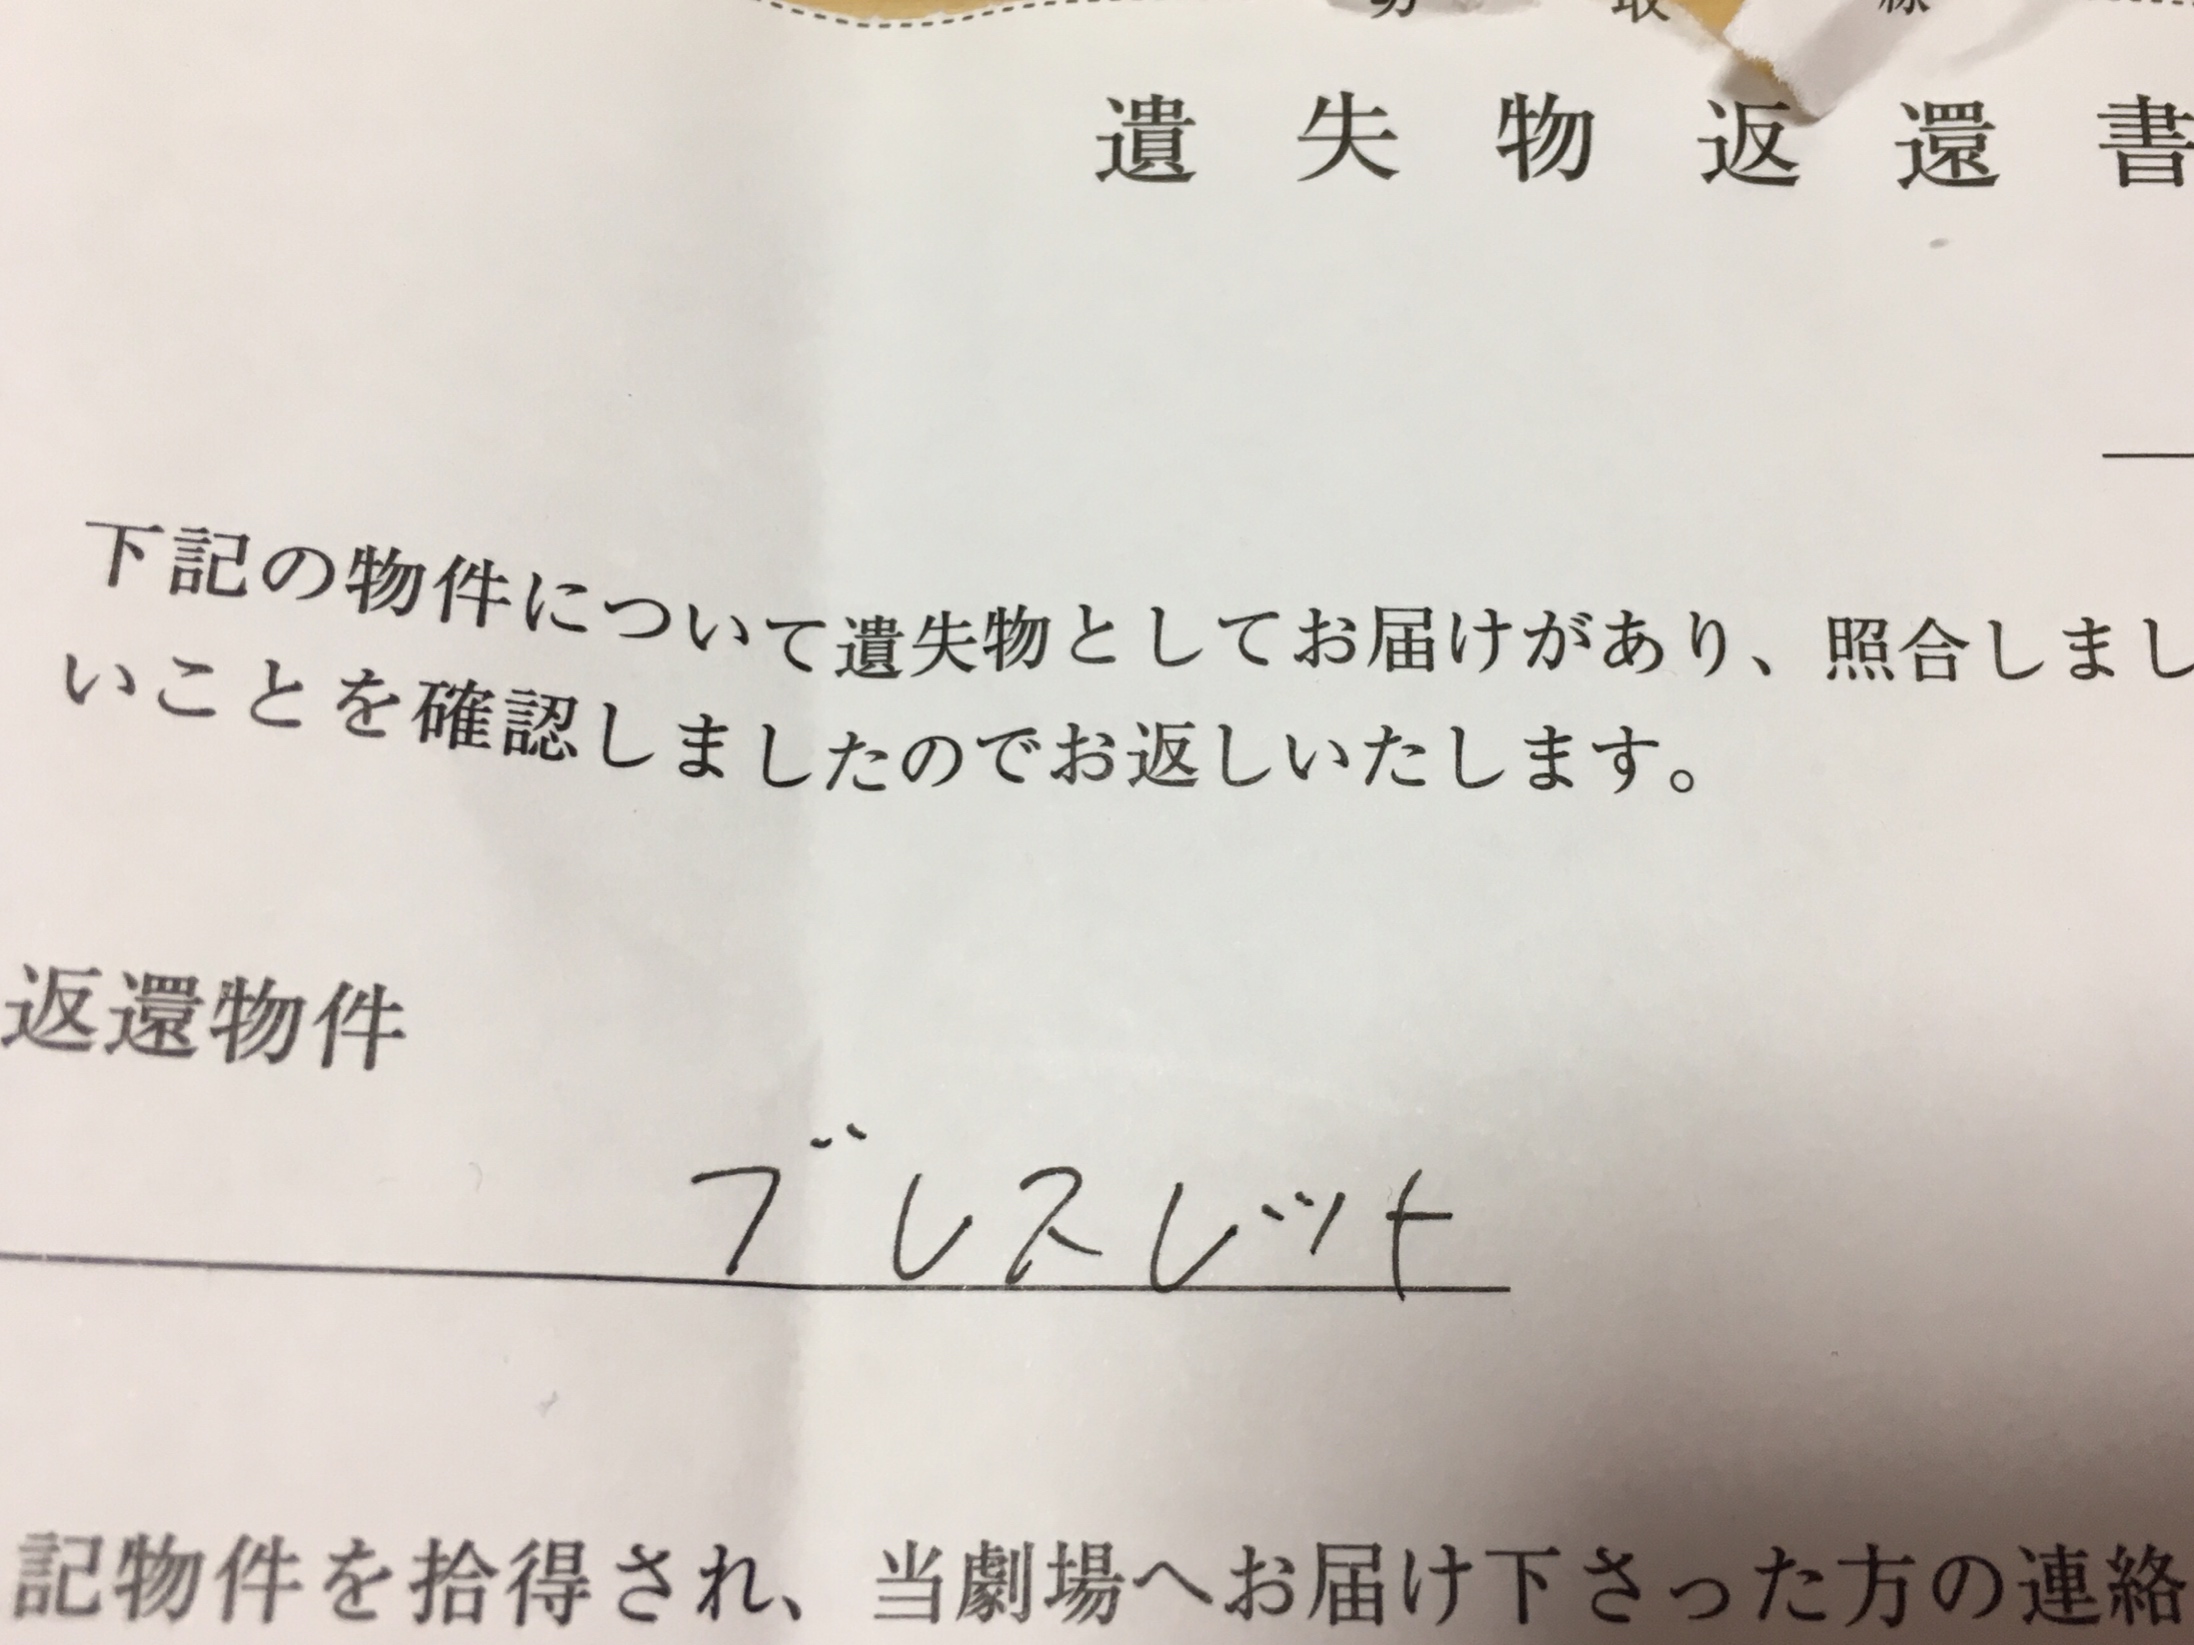 取
遺失物返還書
下記の物件について遺失物としてお届けがあり、照合しまし
いことを確認しましたのでお返しいたします。
返還物件
ブレスレット
記物件を拾得され、当劇場へお届け下さった方の連絡